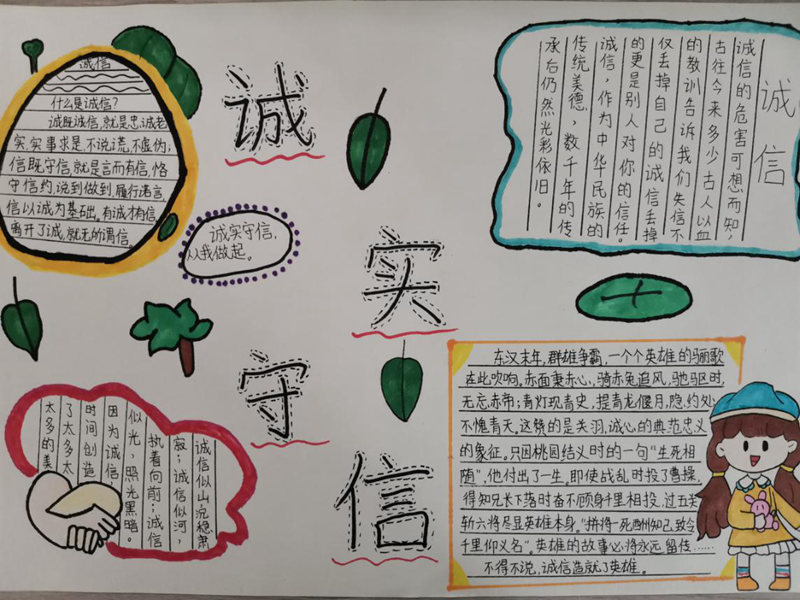 诚信
什么是诚信?
诚既诚信,就是忠诚老
实,实事求是,不说谎,不虚伪,
信既守信,就是言而有信,恪
守信约,说到做到,履行诺言,
信以诚为基础。有诚才有信,
离开了诚,就无所谓信。
诚实守信
诚实守信,
从我做起。
诚信
诚信的危害可想而知,
古往今来多少古人以血
的教训告诉我们失信不
仅丢掉自己的诚信丢掉
的更是别人对你的信任。
诚信,作为中华民族的
传统美德,数千年的传
承后仍然光彩依旧。
诚信似山沉稳肃
寂;诚信似河,
执着向前;诚信
似光,照光黑暗。
因为诚信
时间创造
了太多太
太多的美
东汉末年,群雄争霸,一个个英雄的骊歌
在此吹响。赤面秉赤心,骑赤兔追风,驰驱时,
无忘赤帝;青灯观青史,提青龙偃月,隐约处
不愧青天。这赞的是关羽,诚心的典范忠义
的象征。只因桃园结义时的一句“生死相
随”,他付出了一生,即使战乱时投了曹操,
得知兄长下落时奋不顾身千里相投,过五关
斩六将尽显英雄本身。“拼将一死酬知己,致令
千里仰义名”。英雄的故事心将永远留传……
不得不说,诚信造就了英雄。